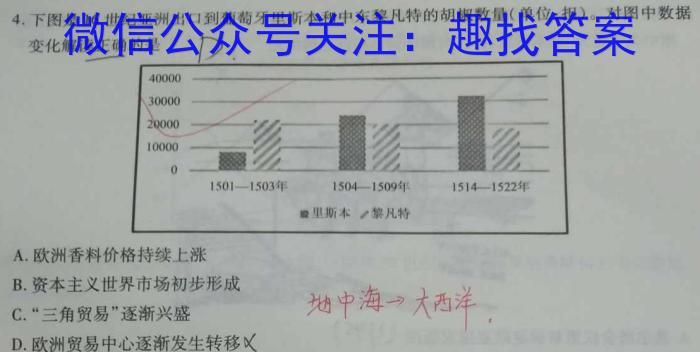 4. 下图是16世纪亚洲出口到葡萄牙里斯本和中东黎凡特的胡椒数量(单位:担)。对图中数据
变化解读正确的是
微信公众号关注：趣找答案
40000
30000
20000
10000
0
1501—1503年 1504—1509年 1514—1522年
里斯本 黎凡特
A. 欧洲香料价格持续上涨
B. 资本主义世界市场初步形成
C. “三角贸易”逐渐兴盛
D. 欧洲贸易中心逐渐发生转移
地中海→大西洋.